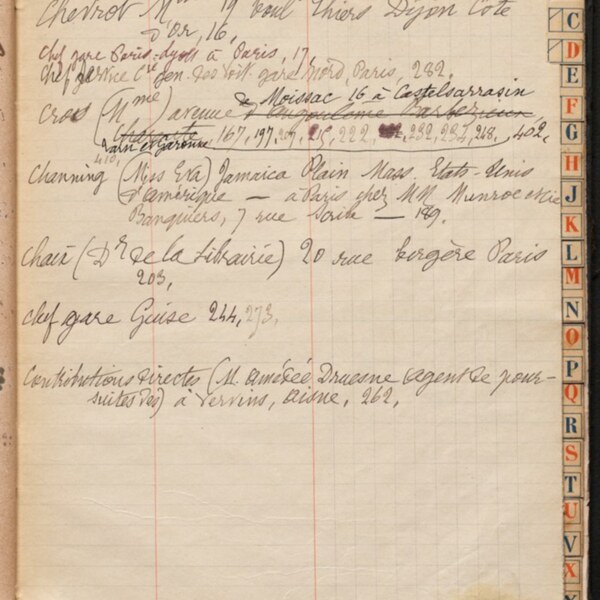 Chevrot Mme 19 boul Thiers Dijon Côte
d'Or, 16,
chef gare Paris-Lyon à Paris, 17,
chef service Cie gen. des voit. gare nord, Paris, 232.
de Moissac 16 à Castelsarrasin
Cros (Mme) avenue d'Angoulême Barbezieux,
Charente 167, 197, 222, 232, 402,
Tarn et Garonne
410,
Channing (Miss Eva) Jamaica Plain Mass. Etats-Unis
d'amérique — à Paris chez MM Munroe et Cie
Banquiers, 7 rue Scribe — 189.
Chaix (Dr de la Librairie) 20 rue bergère Paris
203,
chef gare Guise 244, 273,
Contributions directes (M. Amédée Druesne agent de pour-
suites des) à Vervins, Aisne, 262,
C
D
E
F
G
H
J
K
L
M
N
O
P
Q
R
S
T
U
V
X